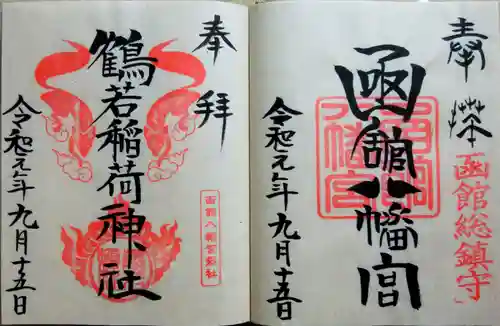 奉拝
函館総鎮守
函館八幡宮
函館八幡宮
令和元年九月十五日
奉拝
鶴若稲荷神社
函館八幡宮末社
令和元年九月十五日